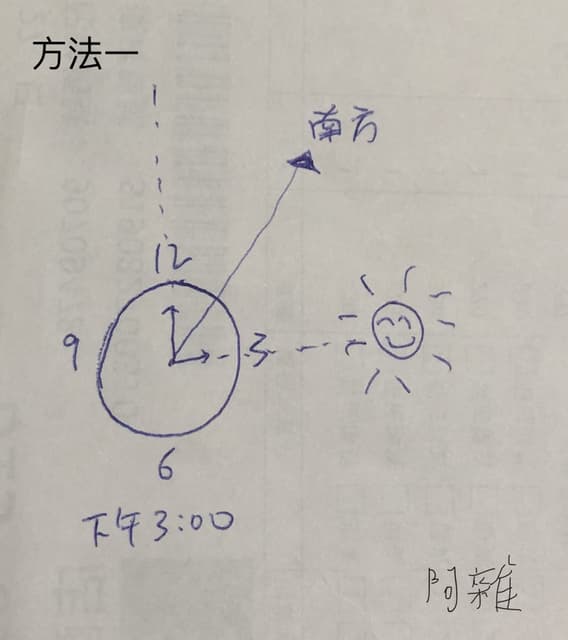 方法一
南方
12
9
3
6
下午3:00
阿雜